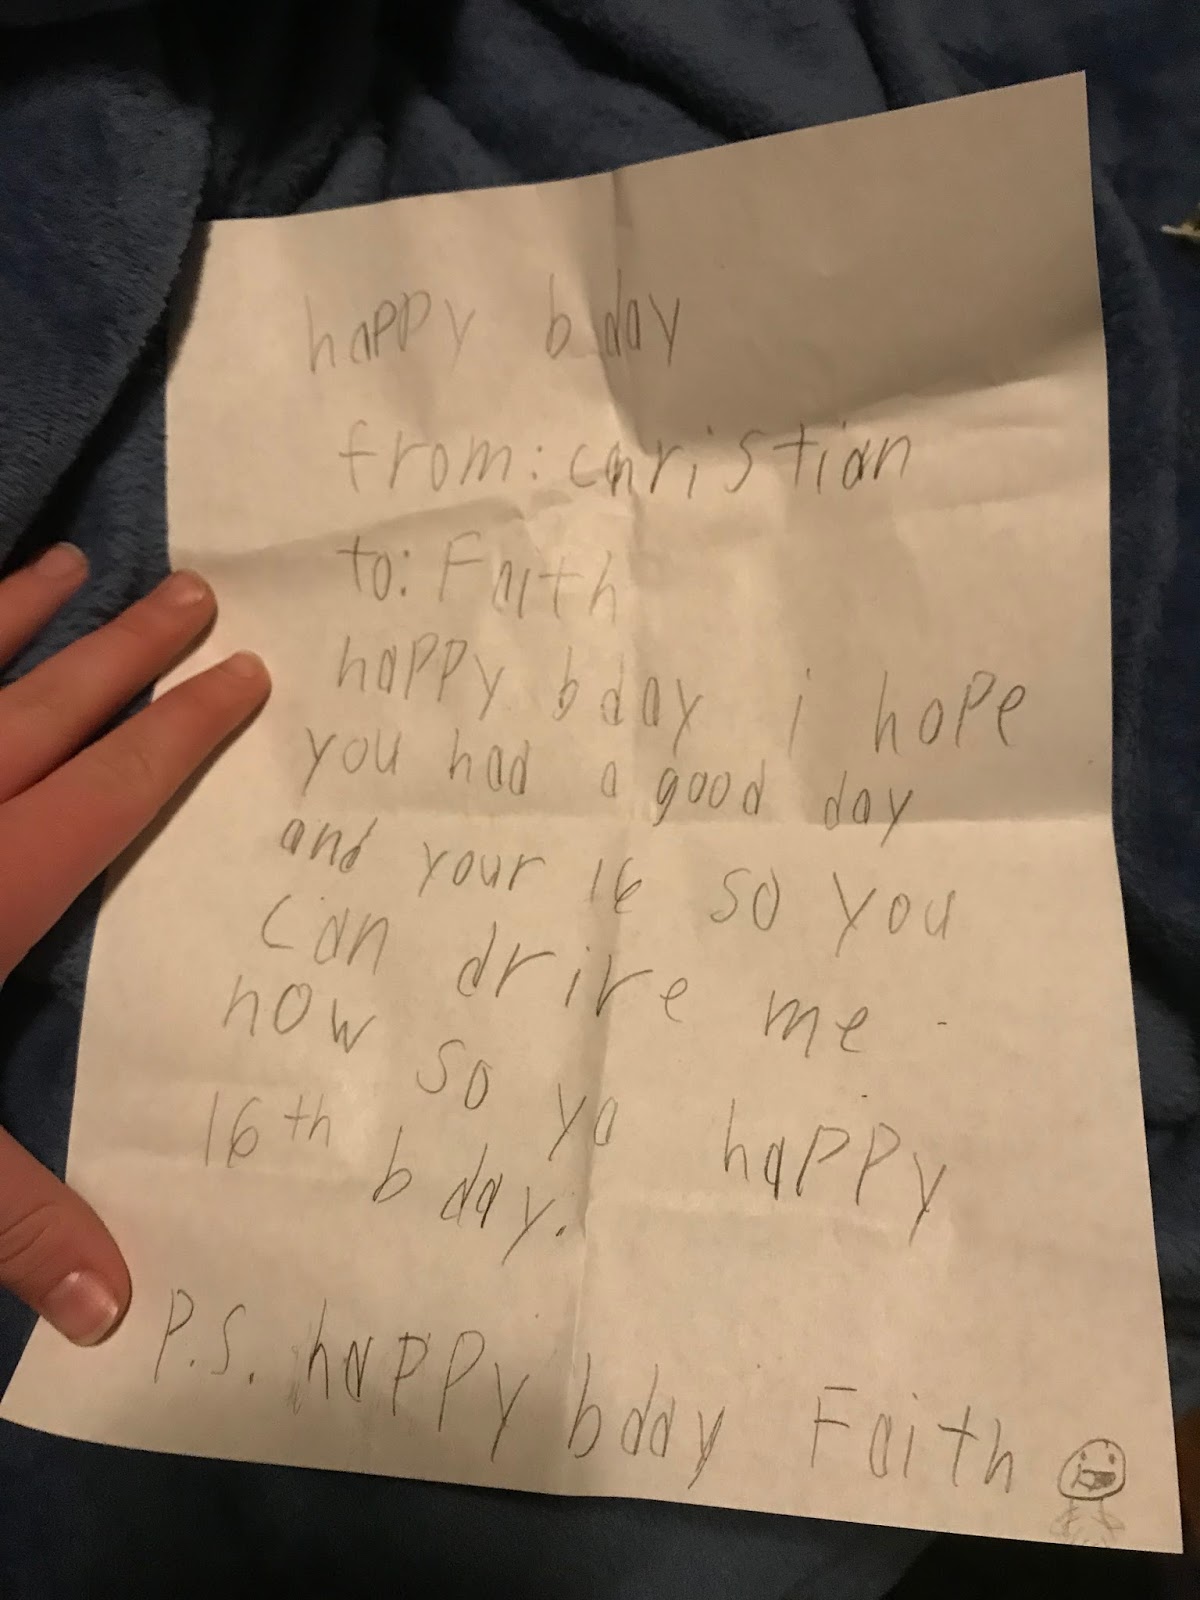 happy b day
from: christian
to: Faith
happy b day i hope
you had a good day
and your 16 so you
can drive me
now so ya happy
16th b day.
P.S. happy bday Faith